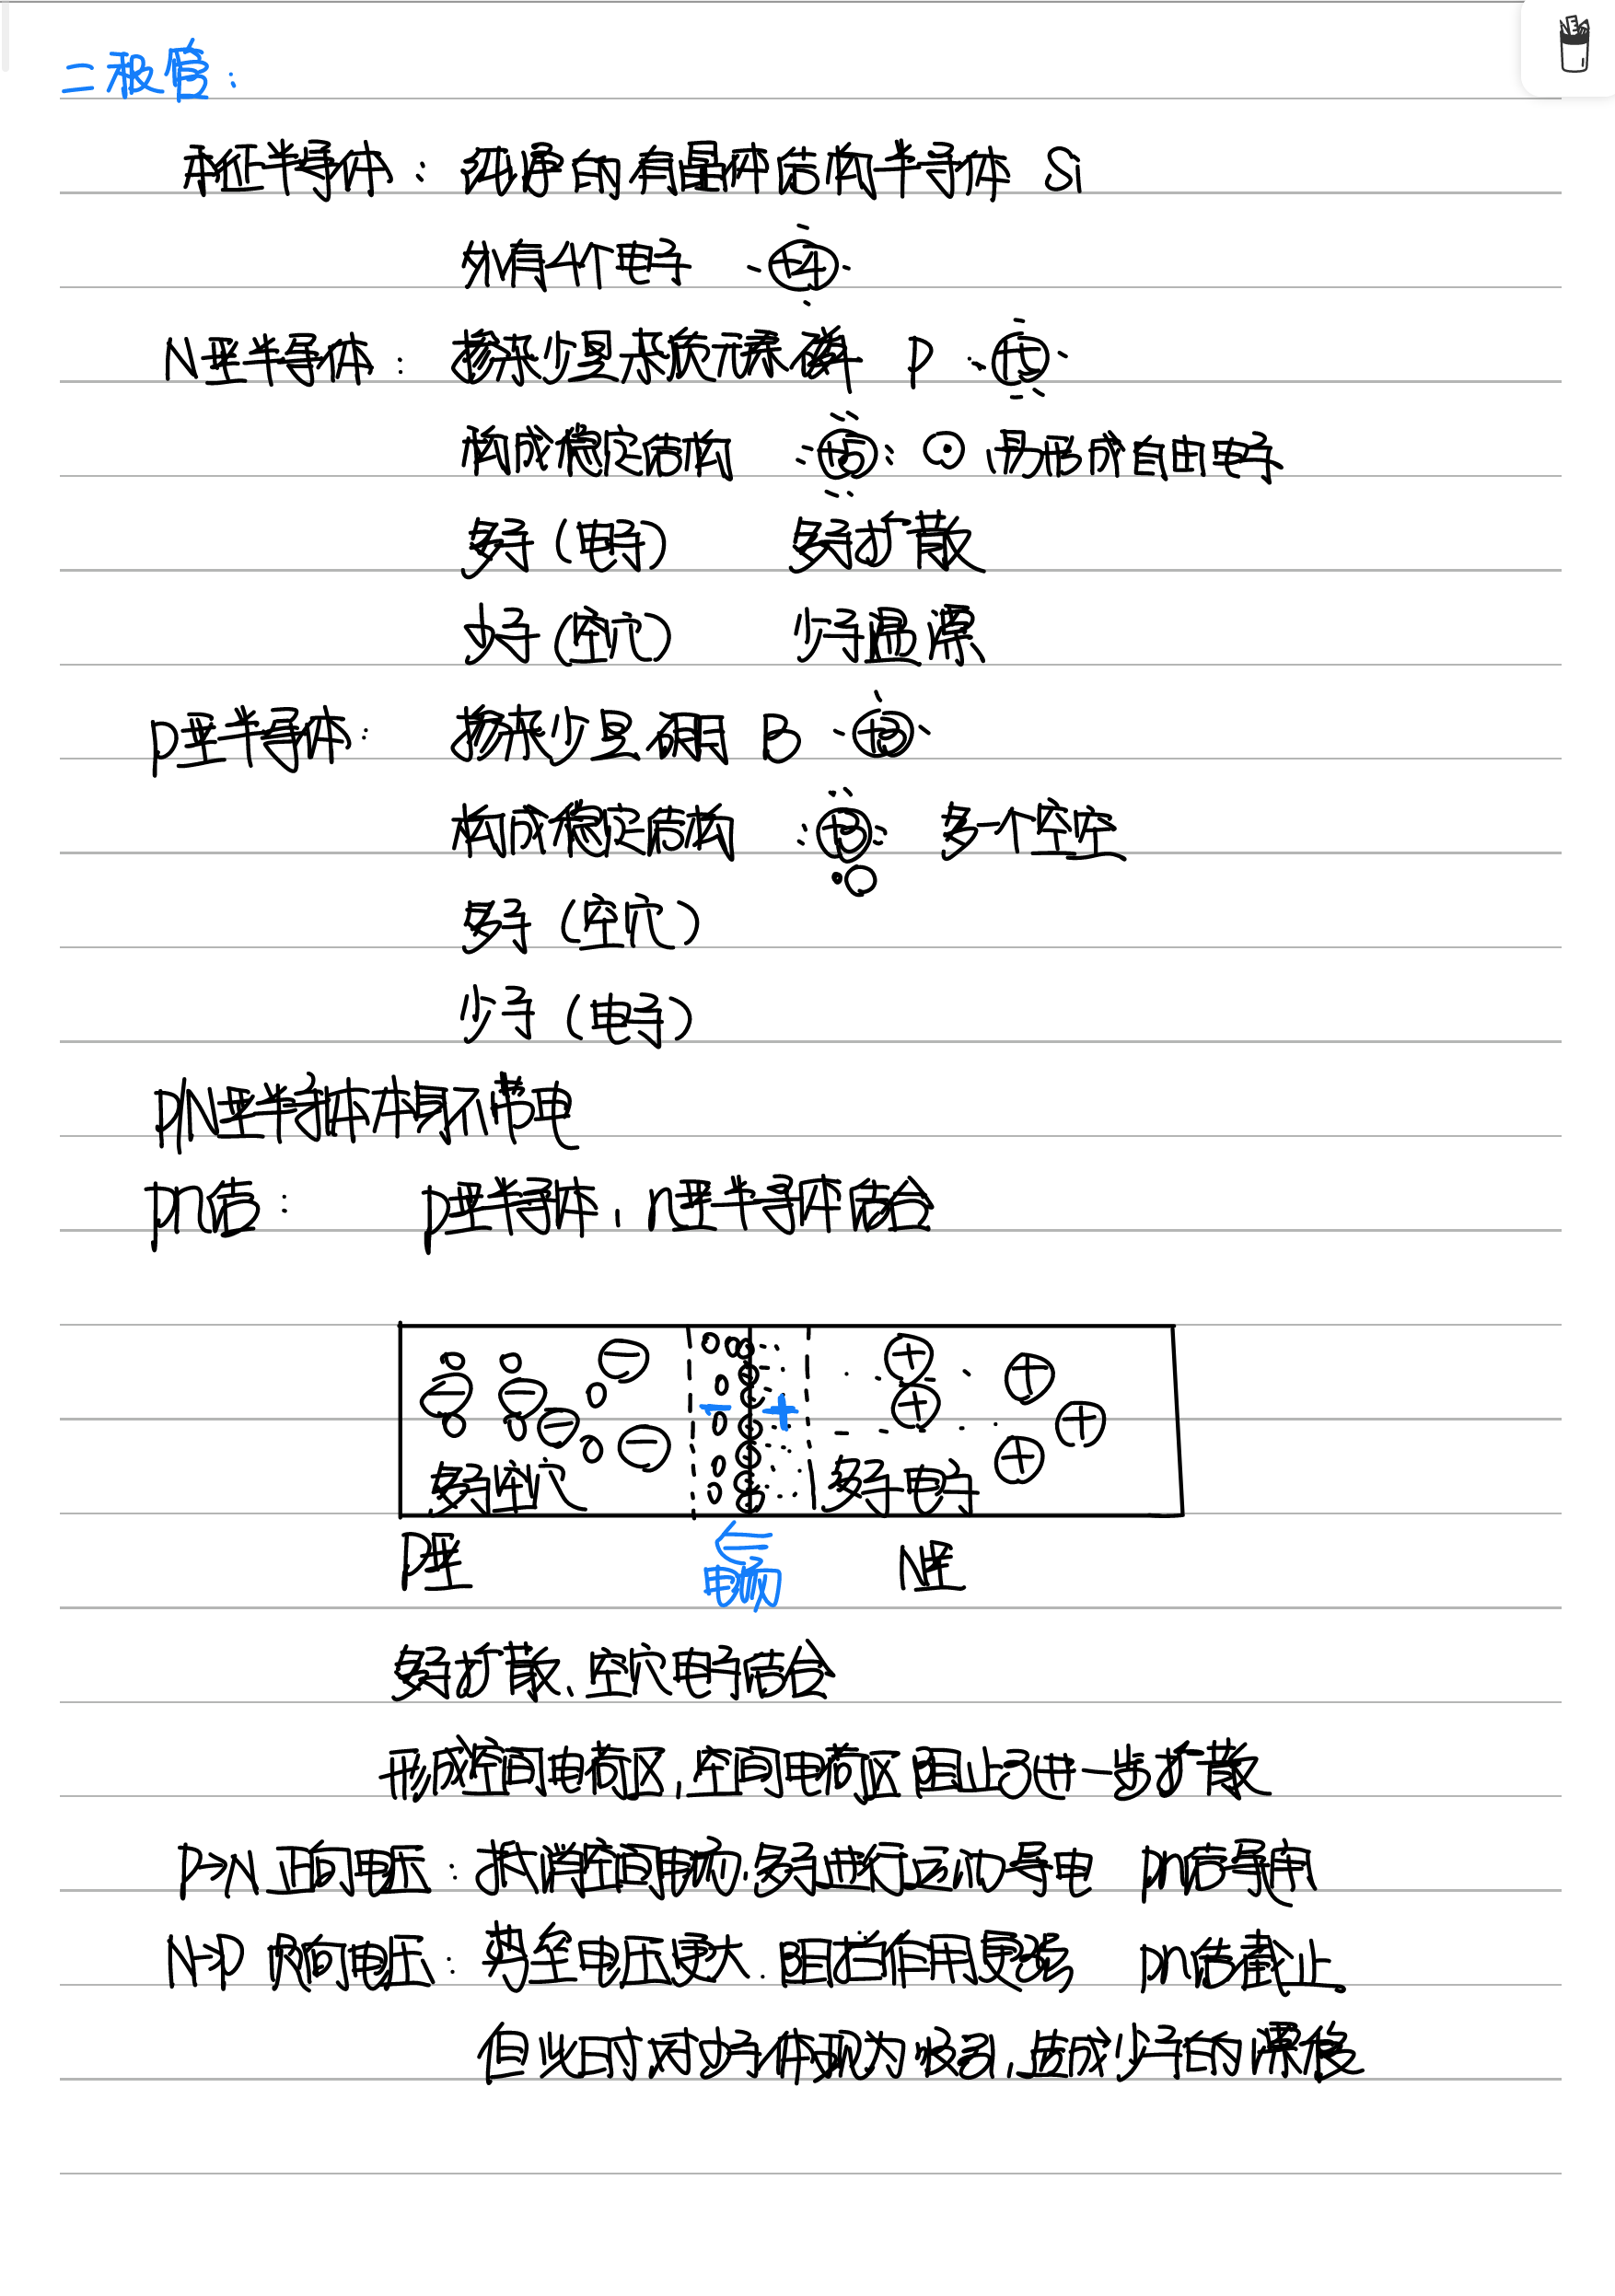 二极管：
本征半导体：纯净的有晶体结构半导体 Si
外有4个电子 +4
N型半导体：掺杂少量杂质元素磷 P +5
构成稳定结构 +5 易形成自由电子
多子（电子） 多子扩散
少子（空穴） 少子温漂
P型半导体：掺杂少量硼 B +3
构成稳定结构 +3 多一个空穴
多子（空穴）
少子（电子）
P/N型半导体本身不带电
pn结：p型半导体，n型半导体结合
− +
多子空穴 多子电子
P型 电场 N型
多子扩散、空穴电子结合
形成空间电荷区，空间电荷区阻止了进一步扩散
P→N 正向电压：抵消空间电荷，多子进行运动导电 pn结导通
N→P 反向电压：势垒电压更大．阻挡作用更强 pn结截止．
但此时对少子体现为吸引，造成少子的漂移